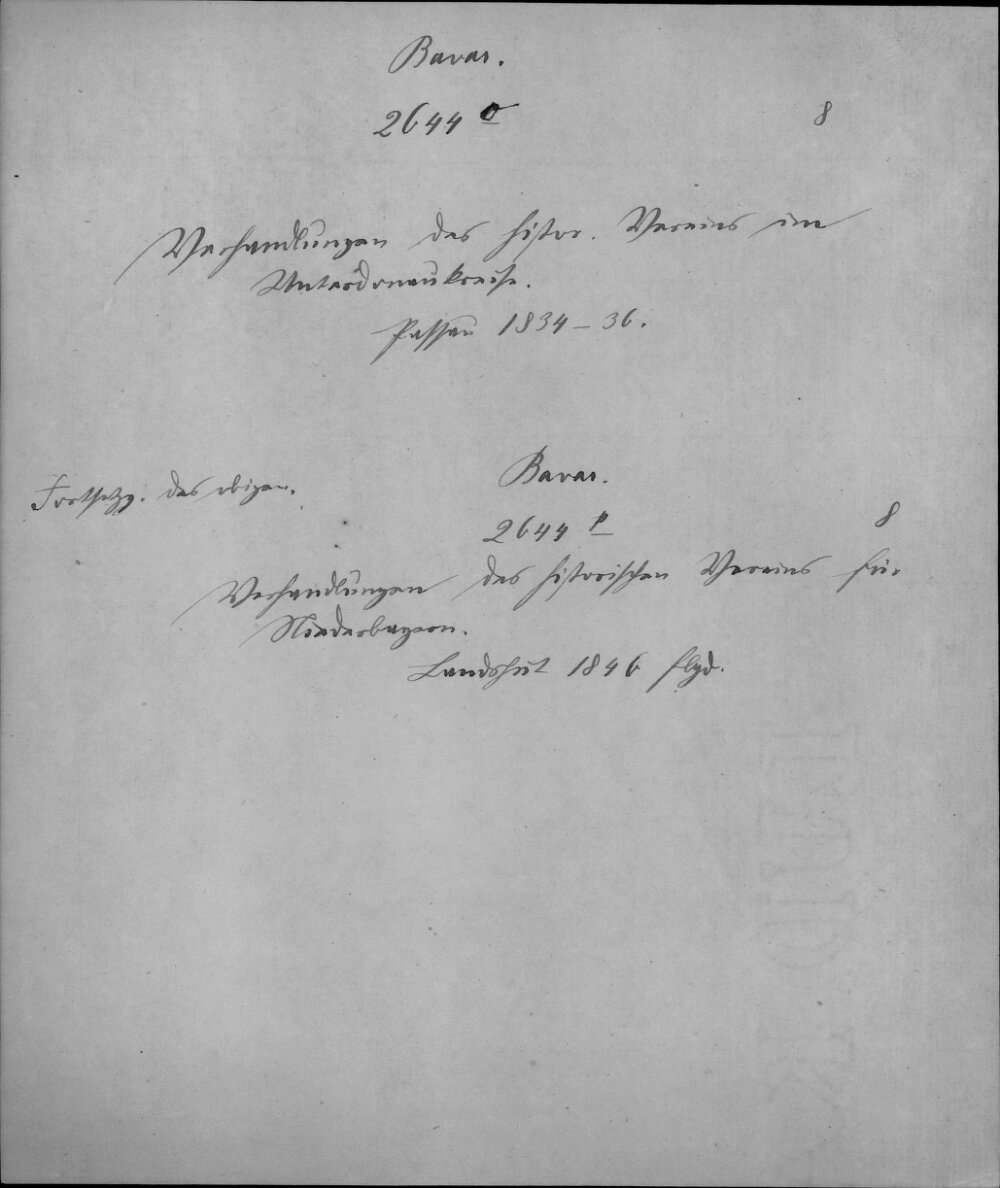 Bavar.
2644 o 8
Verhandlungen des histor. Vereins im
Unterdonaukreise.
Passau 1834-36.
Fortsetzg. des obigen.
Bavar.
2644 p 8
Verhandlungen des historischen Vereins für
Niederbayern.
Landshut 1846 flgd.